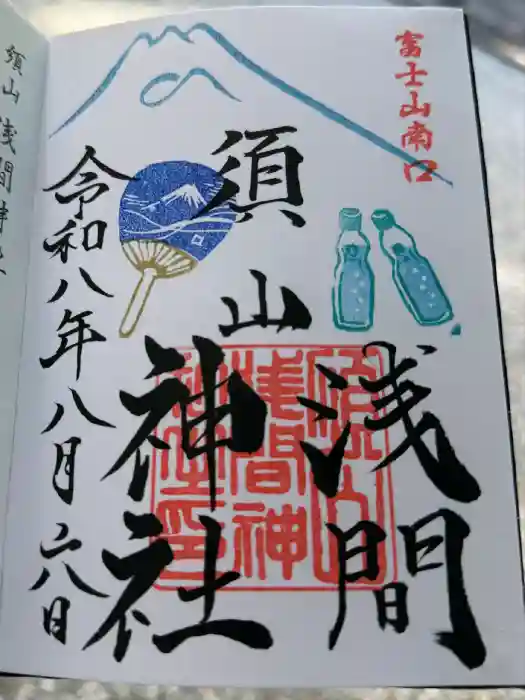 富士山南口
須山
浅間
神社
令和八年八月六日
須山
浅間神
須山浅間神社